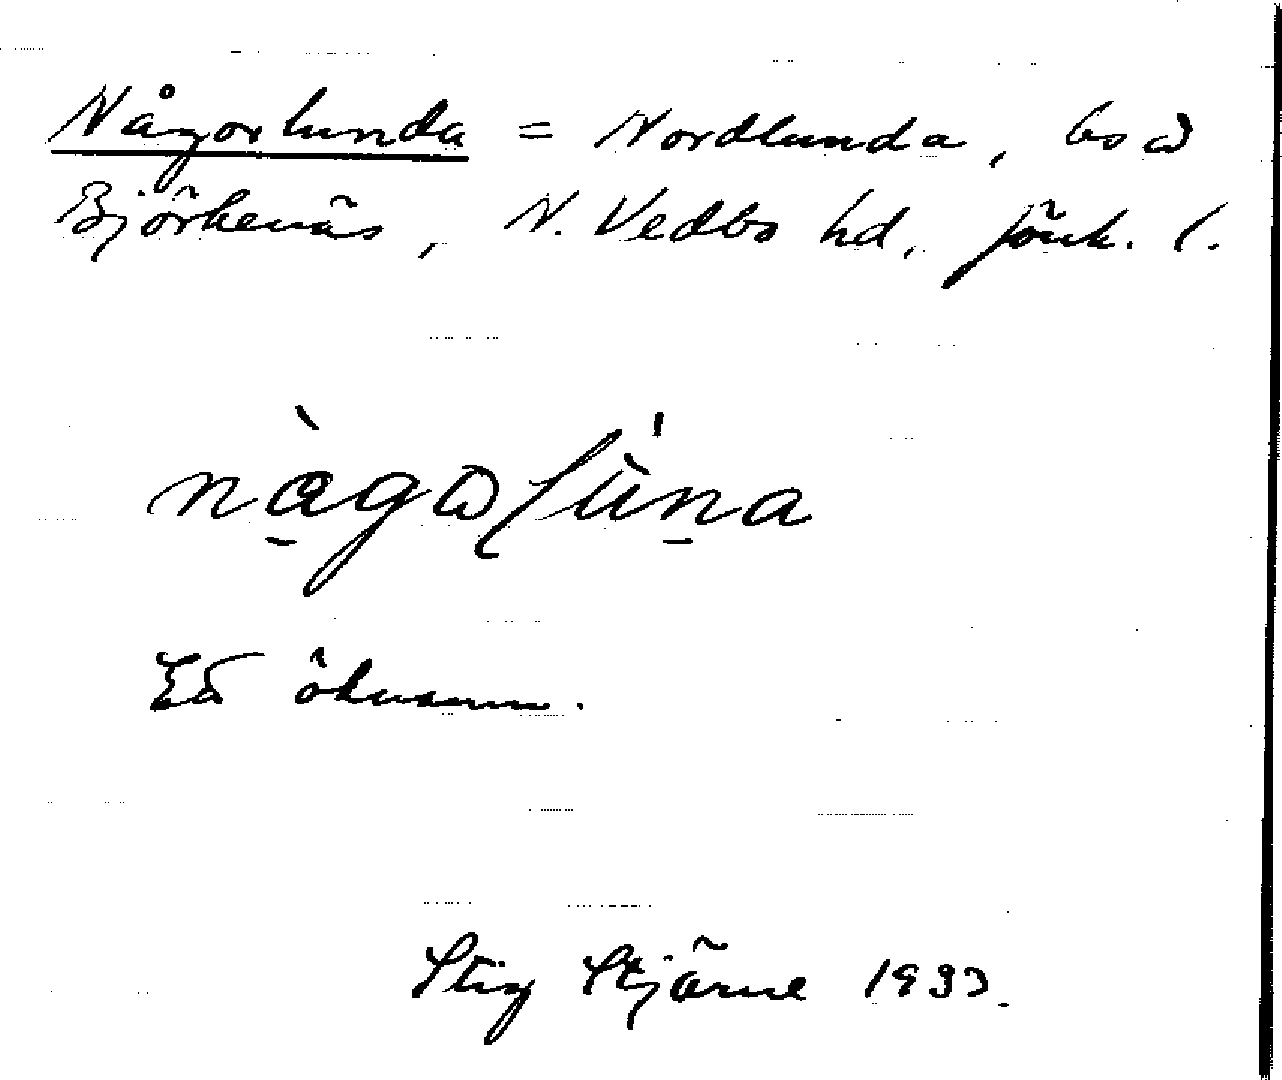 Någorlunda = Nordlunda, bs å
Björkenäs, N. Vedbo hd, Jönk. l.
nàgaluna
Ett öknamn.
Stig Stjärne 1933.